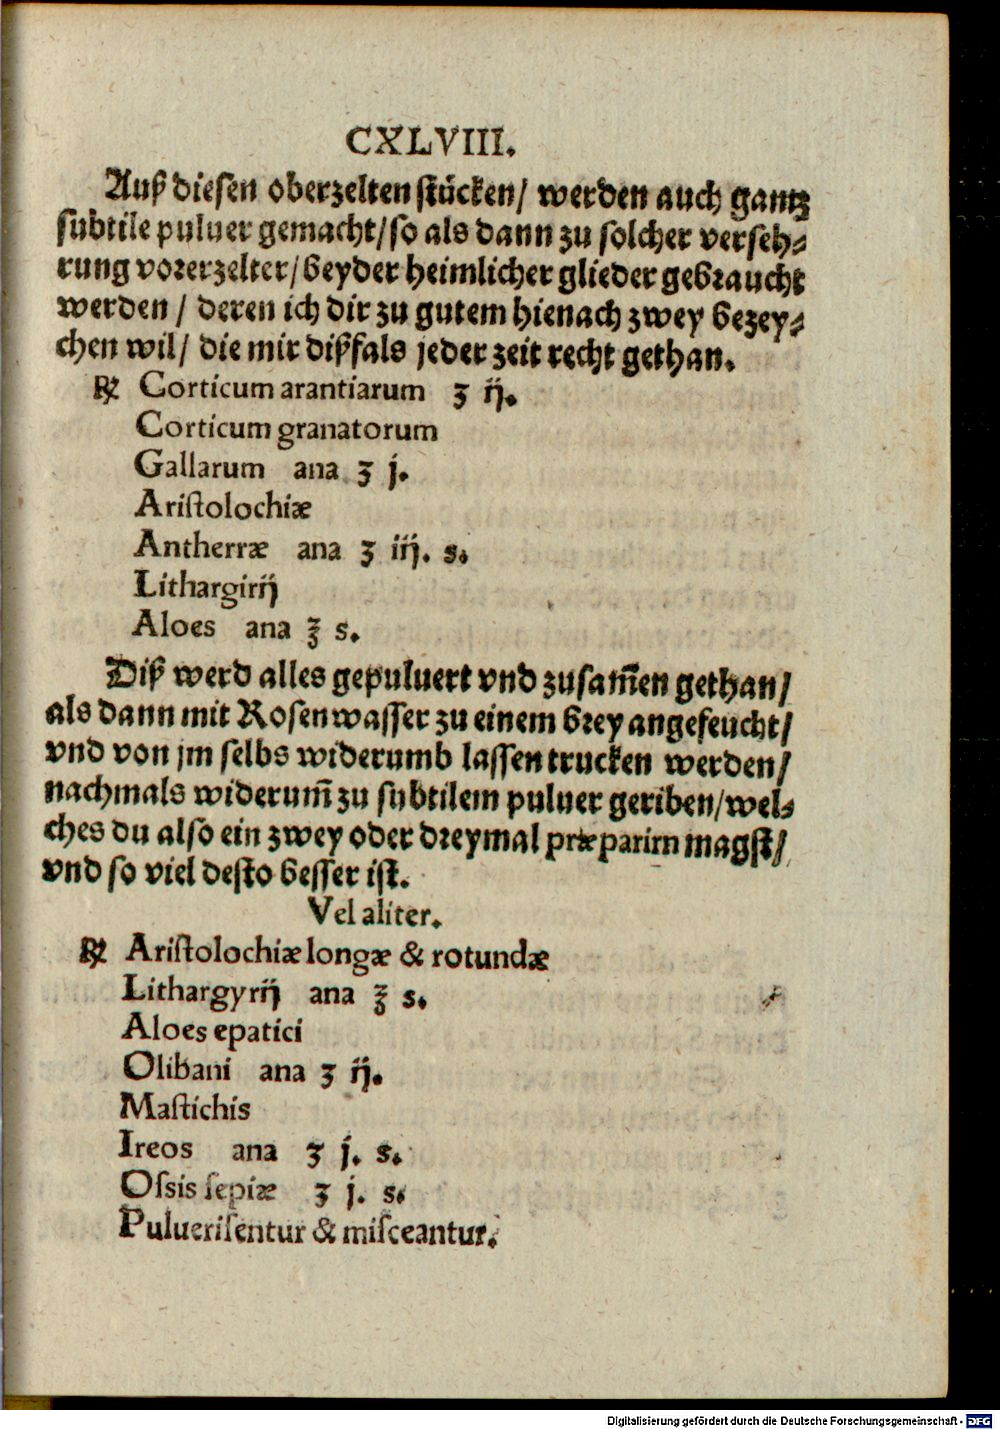 CXLVIII.
Auß diesen oberzelten stücken/ werden auch gantz
subtile puluer gemacht/so als dann zu solcher verseh⸗
rung vorerzelter/beyder heimlicher glieder gebraucht
werden / deren ich dir zu gutem hienach zwey bezey⸗
chen wil/ die mir dißfals jeder zeit recht gethan.
℞ Corticum arantiarum ʒ ij.
Corticum granatorum
Gallarum ana ʒ j.
Aristolochiæ
Antherræ ana ʒ iij. s.
Lithargirij
Aloes ana ℥ s.
Diß werd alles gepuluert vnd zusam̃en gethan/
als dann mit Rosenwasser zu einem brey angefeucht/
vnd von jm selbs widerumb lassen trucken werden/
nachmals widerum̃ zu subtilem puluer geriben/wel⸗
ches du also ein zwey oder dreymal præparirn magst/
vnd so viel desto besser ist.
Vel aliter.
℞ Aristolochiæ longæ & rotundæ
Lithargyrij ana ℥ s.
Aloes epatici
Olibani ana ʒ ij.
Mastichis
Ireos ana ʒ j. s.
Ossis sepiæ ʒ j. s.
Puluerisentur & misceantur.
Digitalisierung gefördert durch die Deutsche Forschungsgemeinschaft - DFG